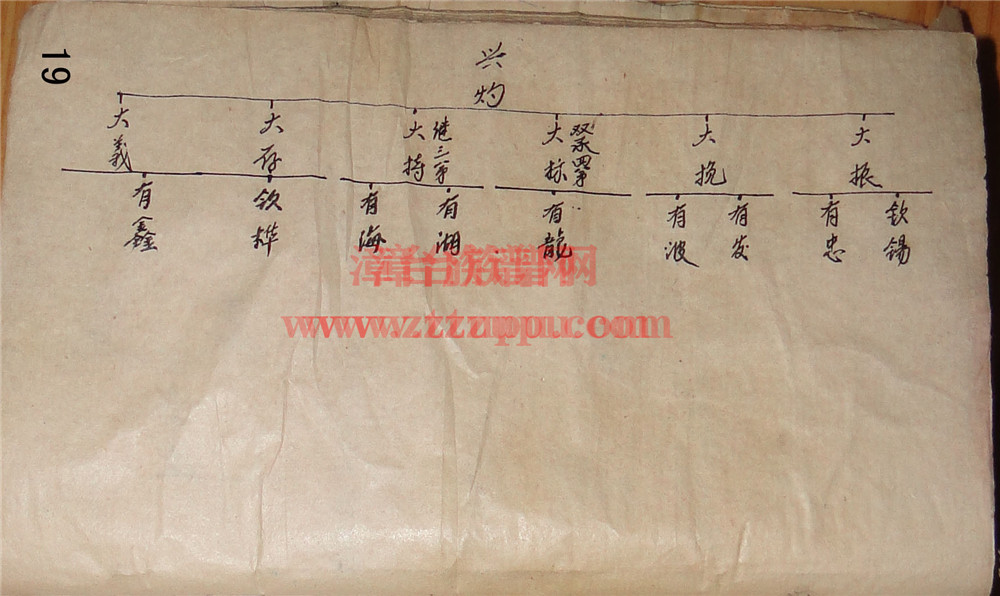 19
兴灼
大義
大存
大持
继三弟
大标
双承四弟
大挽
大振
有鑫
钦桦
有海
有湖
有龍
有波
有发
有忠
钦锡
漳台族谱网
www.zztzupu.com